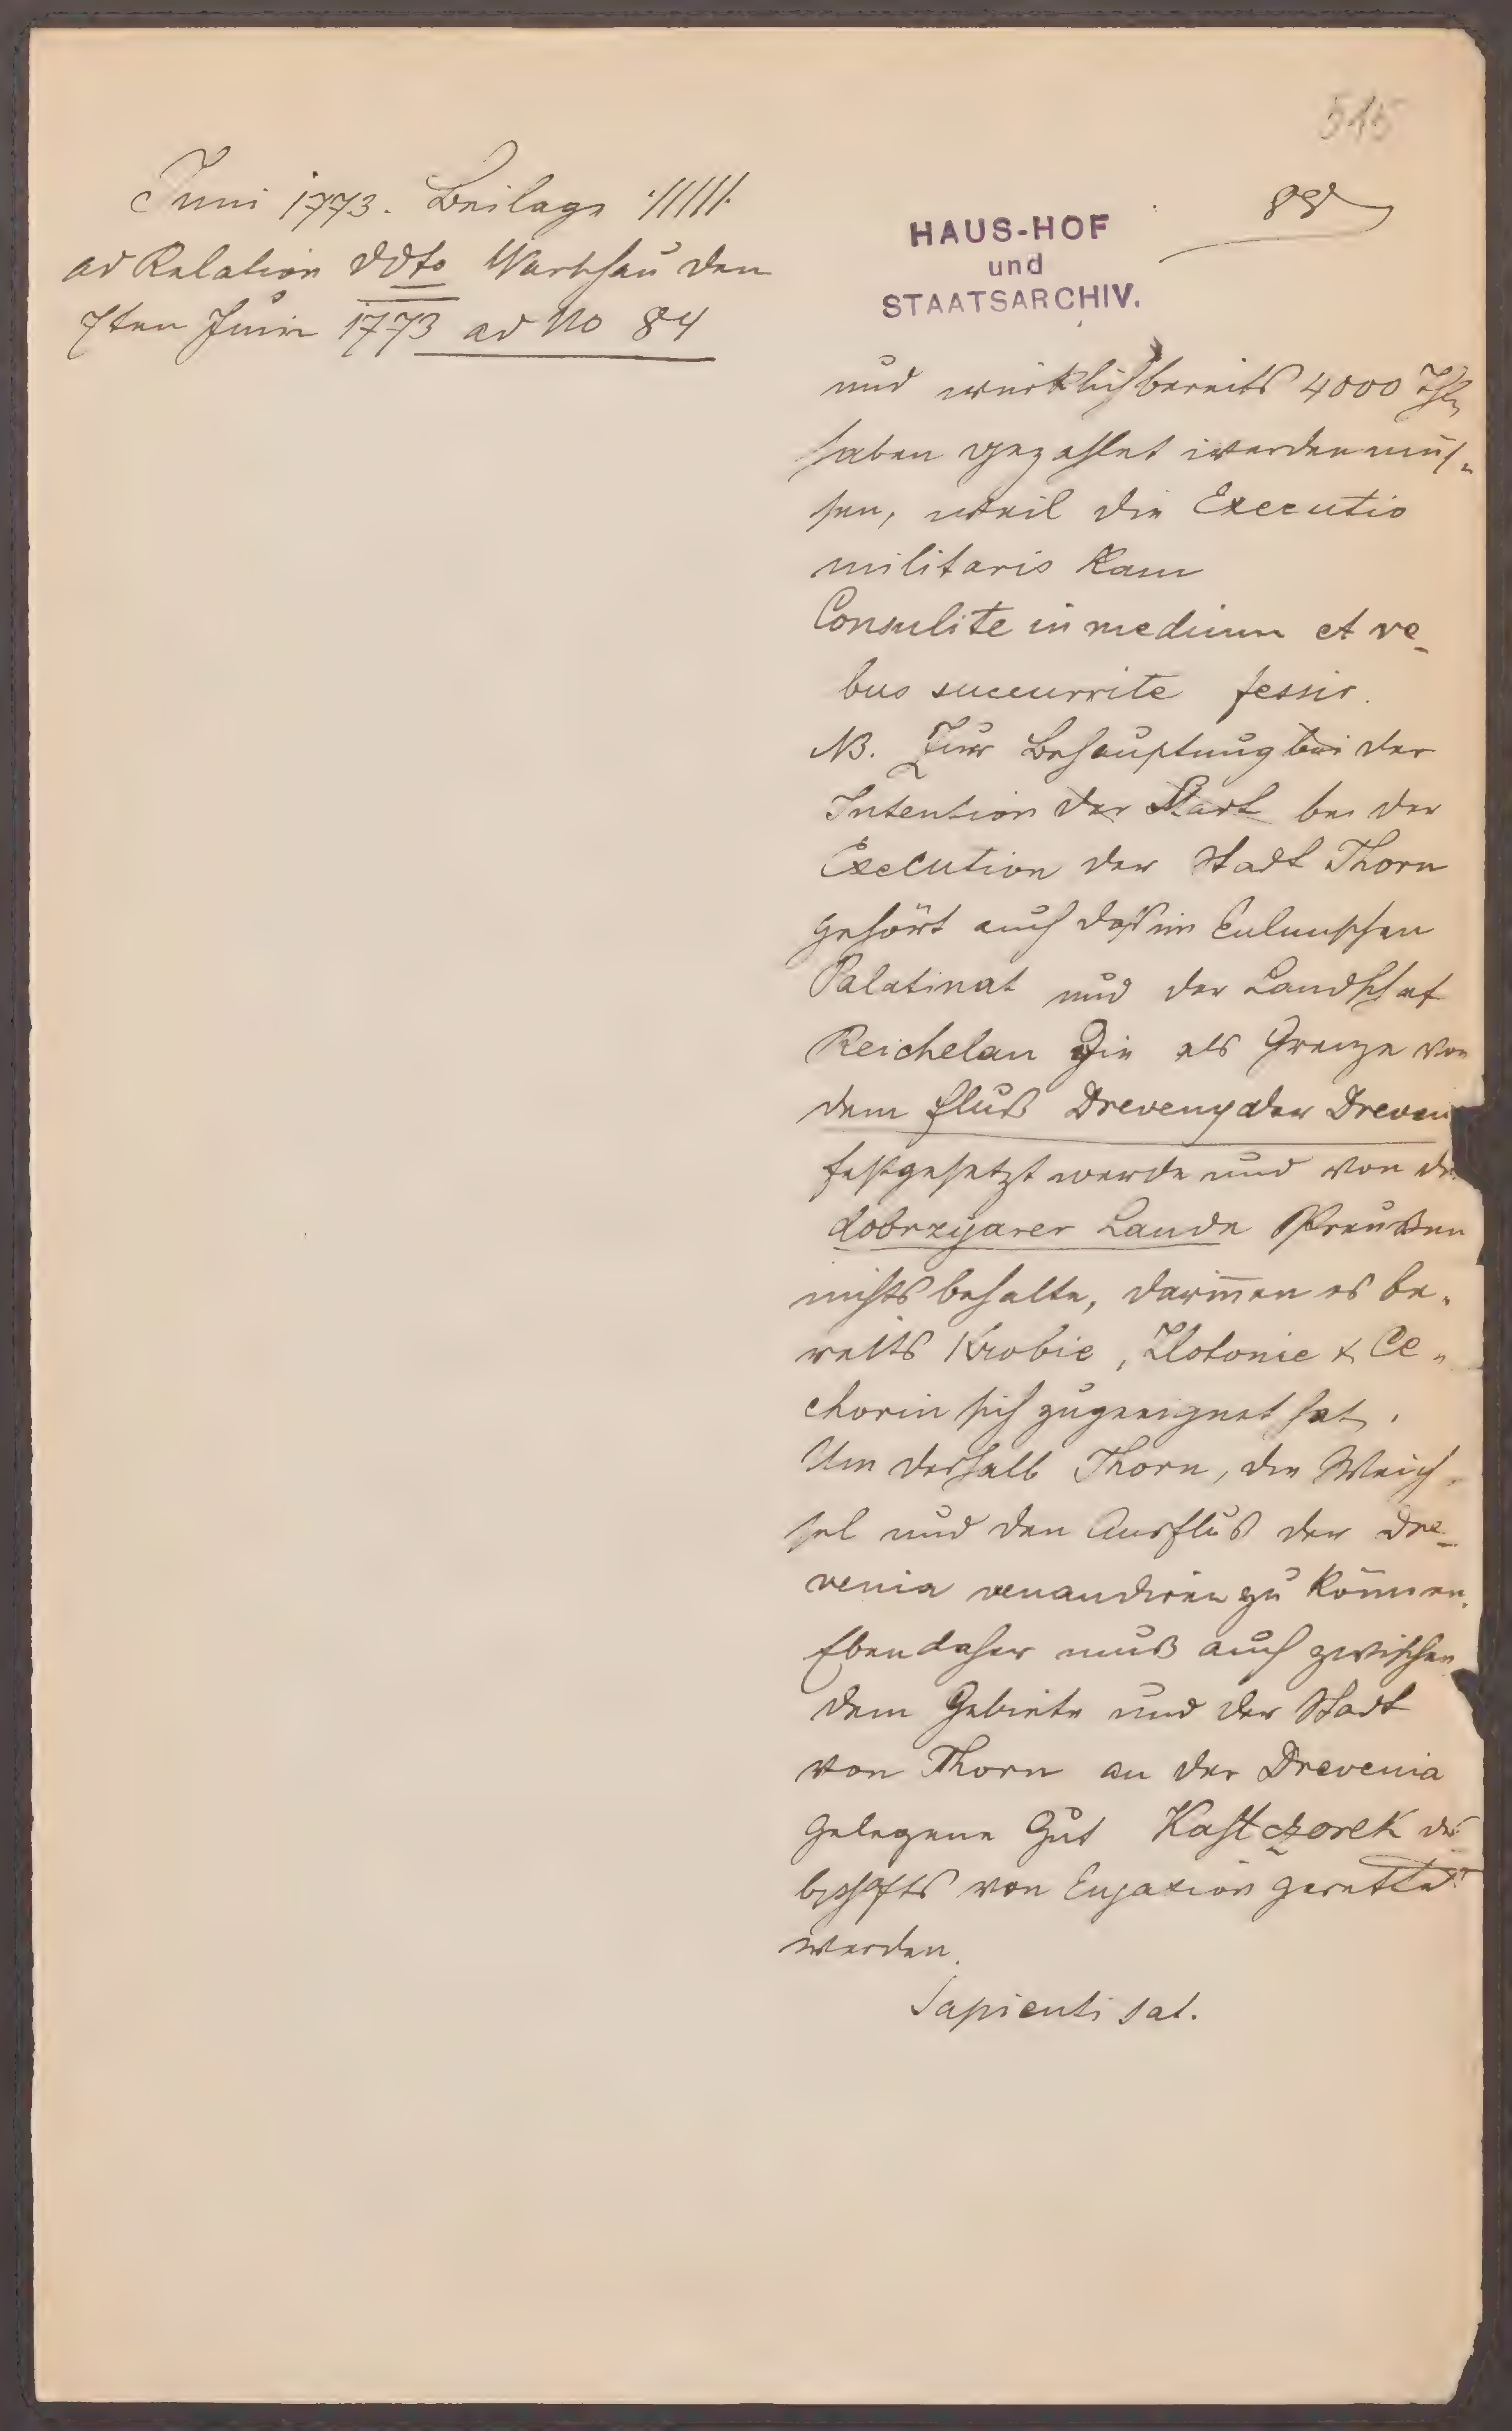 515
88
Juni 1773. Beilage ://///:
ad Relation ddto Warschau den
7ten Juin 1773 ad No 84
HAUS-HOF
und
STAATSARCHIV.
und würklich bereits 4000 Thlr
haben gezahlet werden müs-
sen, weil die Executio
militaris kam
Consulite in medium et re-
bus succurrite fessis.
NB. Zur Behauptung bei der
Intention der Stadt bei der
Execution der Stadt Thorn
gehört auch daß im Culmischen
Palatinat und der Landschaft
Reichelau die als Grenze von
dem Fluß Dreveny oder Dreven
festgesetzt werde und von de
dobrzyner Lande Preußen
nichts behalte, darinnen es be-
reits Krobie, Zlotonie & Ce-
chorin sich zugeeignet hat.
Um deshalb Thorn, die Weich-
sel und den Ausfluß der Dre-
venia zu können.
Eben daher muß auch zwischen
dem Gebiete und der Stadt
von Thorn an der Drevenia
gelegene Gut Kastczorek des
bischofts von Cujavien gerettet
werden.
Sapienti sat.